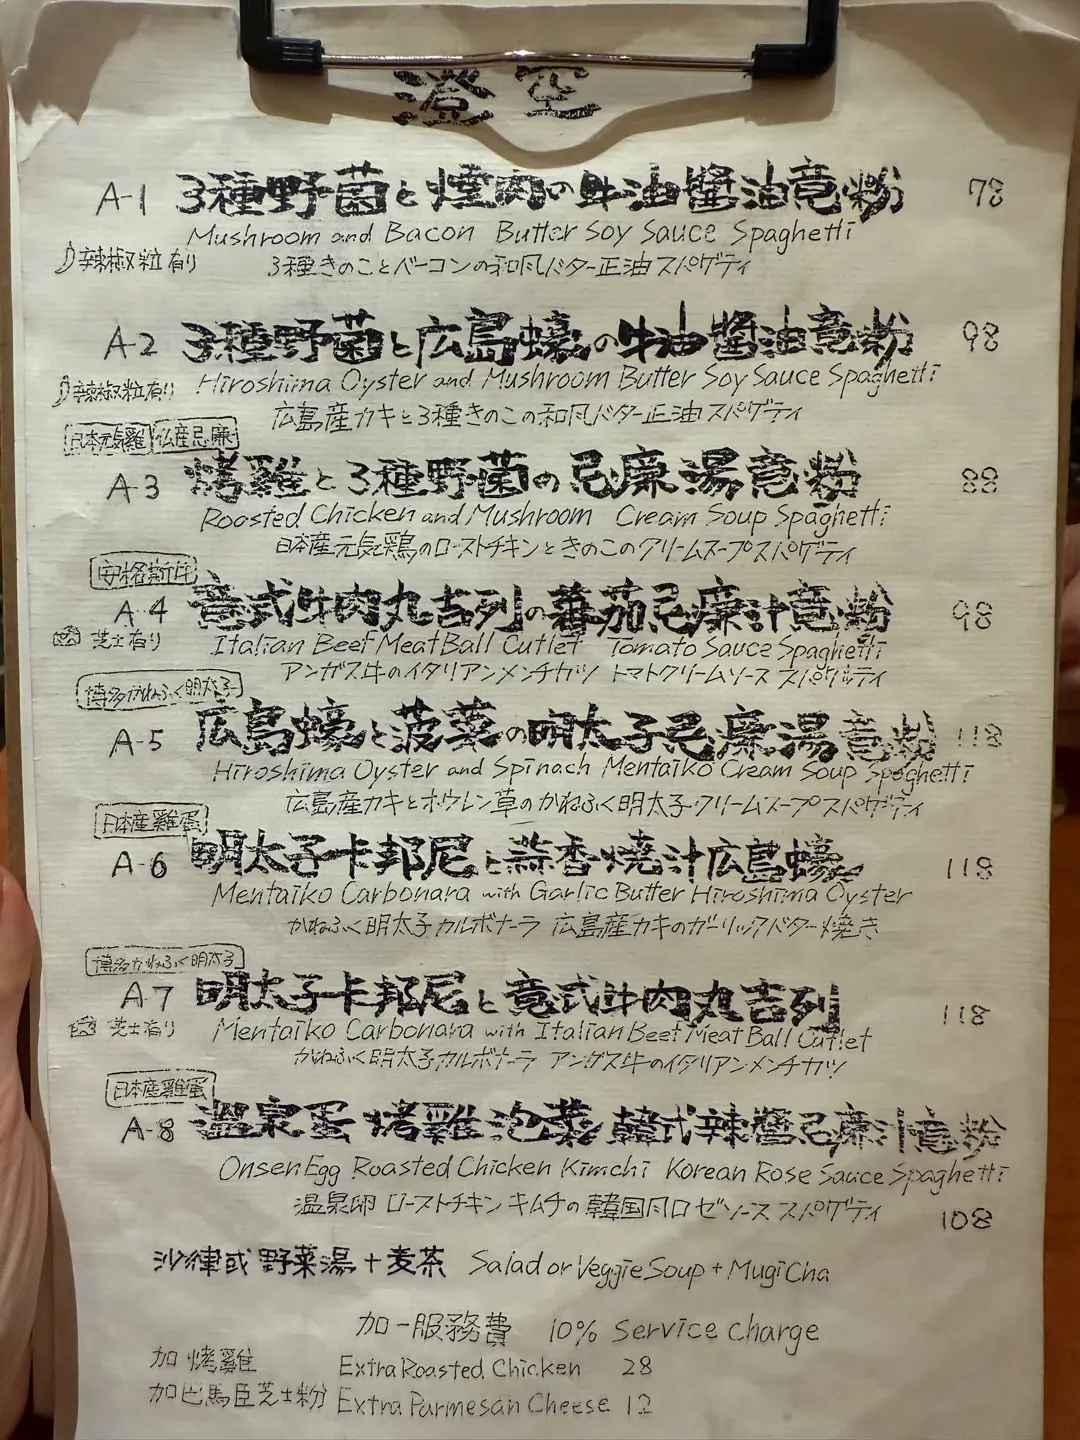 澄空
A-1 3種野菌と燒肉の牛油醬油意粉 78
Mushroom and Bacon Butter Soy Sauce Spaghetti
辣椒粒有り 3種きのことベーコンの和風バター正油スパゲティ
A-2 3種野菌と広島蠔の牛油醬油意粉 98
Hiroshima Oyster and Mushroom Butter Soy Sauce Spaghetti
辣椒粒有り 広島産カキと3種きのこの和風バター正油スパゲティ
日本元気雞 仏産忌廉
A-3 烤雞と3種野菌の忌廉湯意粉 88
Roasted Chicken and Mushroom Cream Soup Spaghetti
日本産元気鶏のローストチキンときのこのクリームスープスパゲティ
安格斯牛
A-4 意式牛肉丸吉列の蕃茄忌廉汁意粉 98
Italian Beef MeatBall Cutlet Tomato Sauce Spaghetti
芝士有り アンガス牛のイタリアンメンチカツ トマトクリームソース スパゲッティ
博多かねふく明太子
A-5 広島蠔と菠菜の明太子忌廉湯意粉 118
Hiroshima Oyster and Spinach Mentaiko Cream Soup Spaghetti
広島産カキとホウレン草のかねふく明太子クリームスープスパゲティ
日本産雞蛋
A-6 明太子卡邦尼と蒜香燒汁広島蠔 118
Mentaiko Carbonara with Garlic Butter Hiroshima Oyster
かねふく明太子カルボナーラ 広島産カキのガーリックバター焼き
博多かねふく明太子
A-7 明太子卡邦尼と意式牛肉丸吉列 118
芝士有り Mentaiko Carbonara with Italian Beef MeatBall Cutlet
かねふく明太子カルボナーラ アンガス牛のイタリアンメンチカツ
日本産雞蛋
A-8 温泉蛋 烤雞泡菜 韓式辣醬忌廉汁意粉
Onsen Egg Roasted Chicken Kimchi Korean Rose Sauce Spaghetti
温泉卵 ローストチキン キムチの韓国風ロゼソース スパゲティ 108
沙律或野菜湯＋麦茶 Salad or Veggie Soup + MugiCha
加一服務費 10% Service Charge
加烤雞 Extra Roasted Chicken 28
加巴馬臣芝士粉 Extra Parmesan Cheese 12